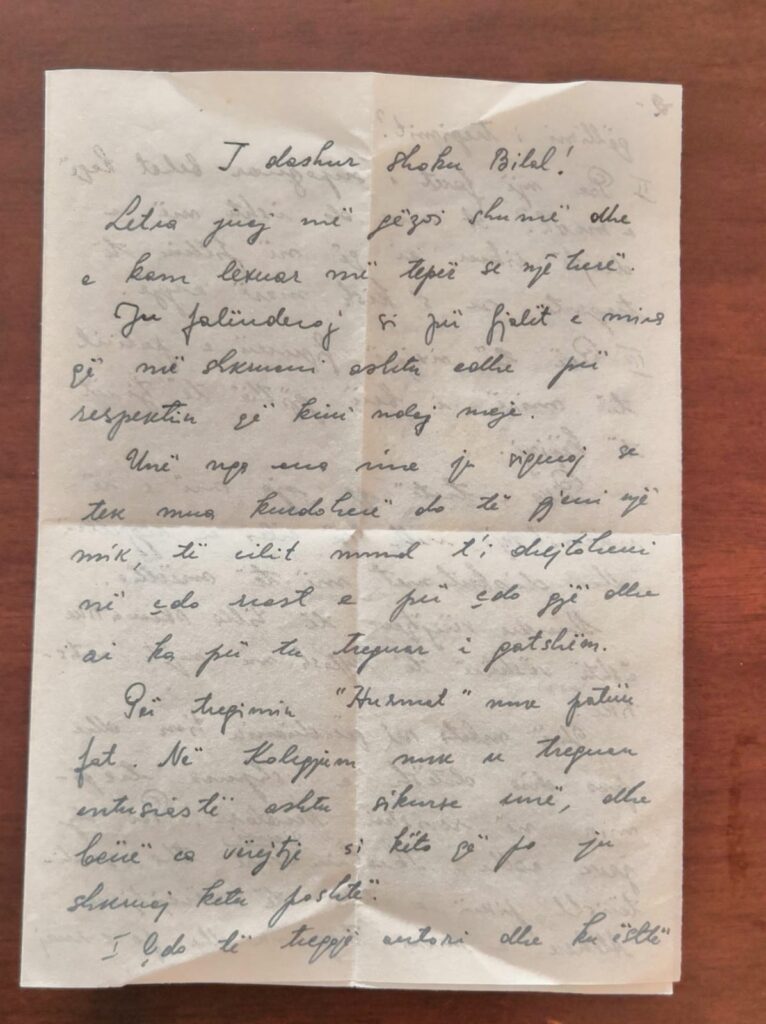 I dashur shoku Bilal!
Letra juaj më gëzoi shumë dhe
e kam lexuar më tepër se një herë.
Ju falënderoj si për fjalët e mira
që më shkruani ashtu edhe për
respektin që kini ndaj meje.
Unë nga ana ime ju siguroj se
tek mua kurdoherë do të gjeni një
mik, të cilit mund t'i drejtoheni
në çdo rast e për çdo gjë dhe
ai ka për tu treguar i gatshëm.
Për tregimin "Hurmat" nuk patëm
fat. Në Kolegjium nuk u treguan
entusiastë ashtu sikurse unë, dhe
bënë ca vërejtje si këto që po ju
shkruaj këtu poshtë:
I Ç'do të tregojë autori dhe ku është